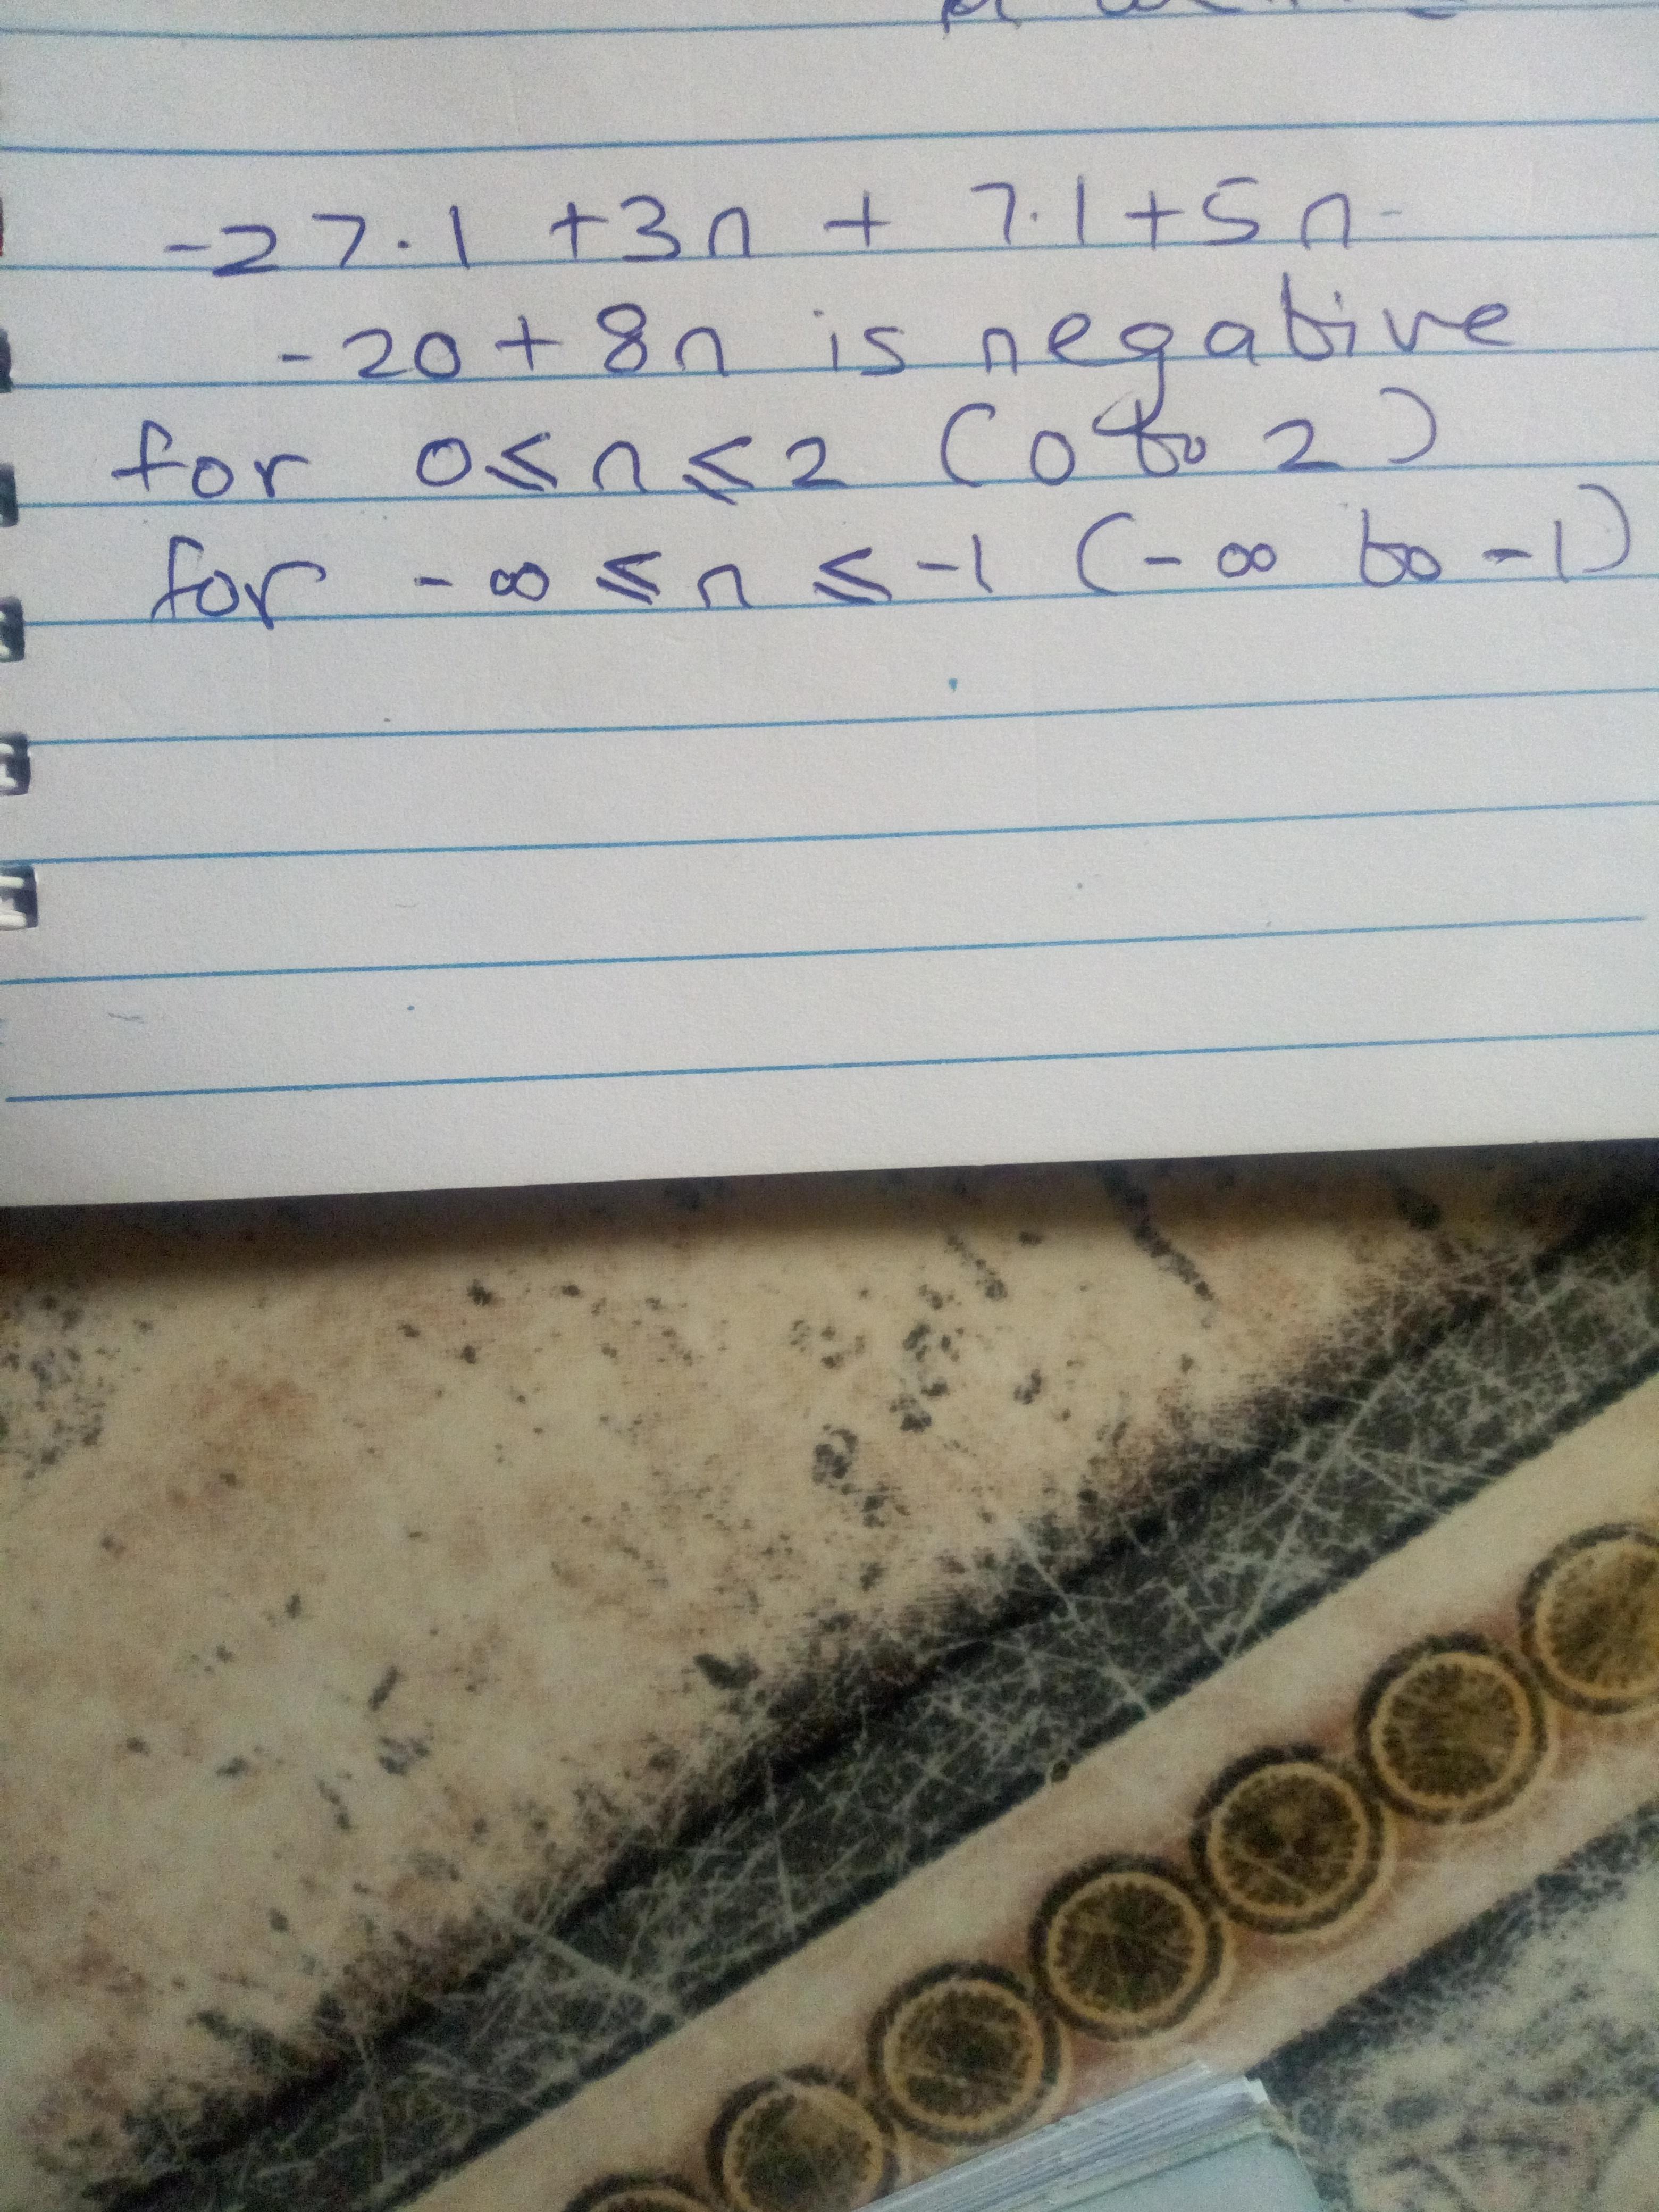 -27.1 +3n + 7.1+5n
-20+8n is negative
for 0≤n≤2 (0 to 2)
for -∞ ≤ n ≤ -1 (-∞ to -1)